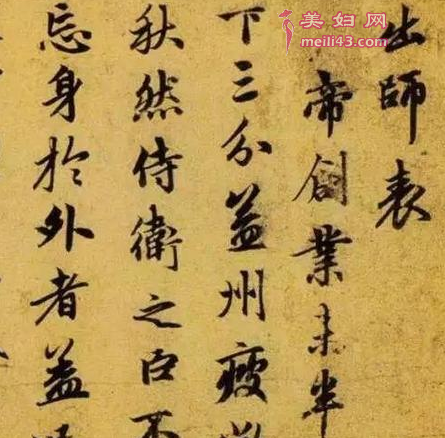 美妇网
meili43.com
出師表
帝創業未半
下三分益州疲
秋然侍衛之臣不
忘身於外者盖